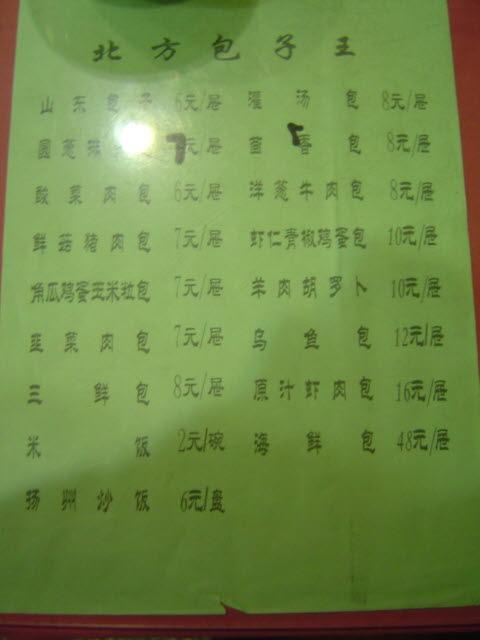 北方包子王
山东包子 6元/屉 灌汤包 8元/屉
圆葱 7元/屉 茴香包 8元/屉
酸菜肉包 6元/屉 洋葱牛肉包 8元/屉
鲜菇猪肉包 7元/屉 虾仁青椒鸡蛋包 10元/屉
角瓜鸡蛋玉米粒包 7元/屉 羊肉胡罗卜 10元/屉
韭菜肉包 7元/屉 乌鱼包 12元/屉
三鲜包 8元/屉 原汁虾肉包 16元/屉
米饭 2元/碗 海鲜包 48元/屉
扬州炒饭 6元/盘